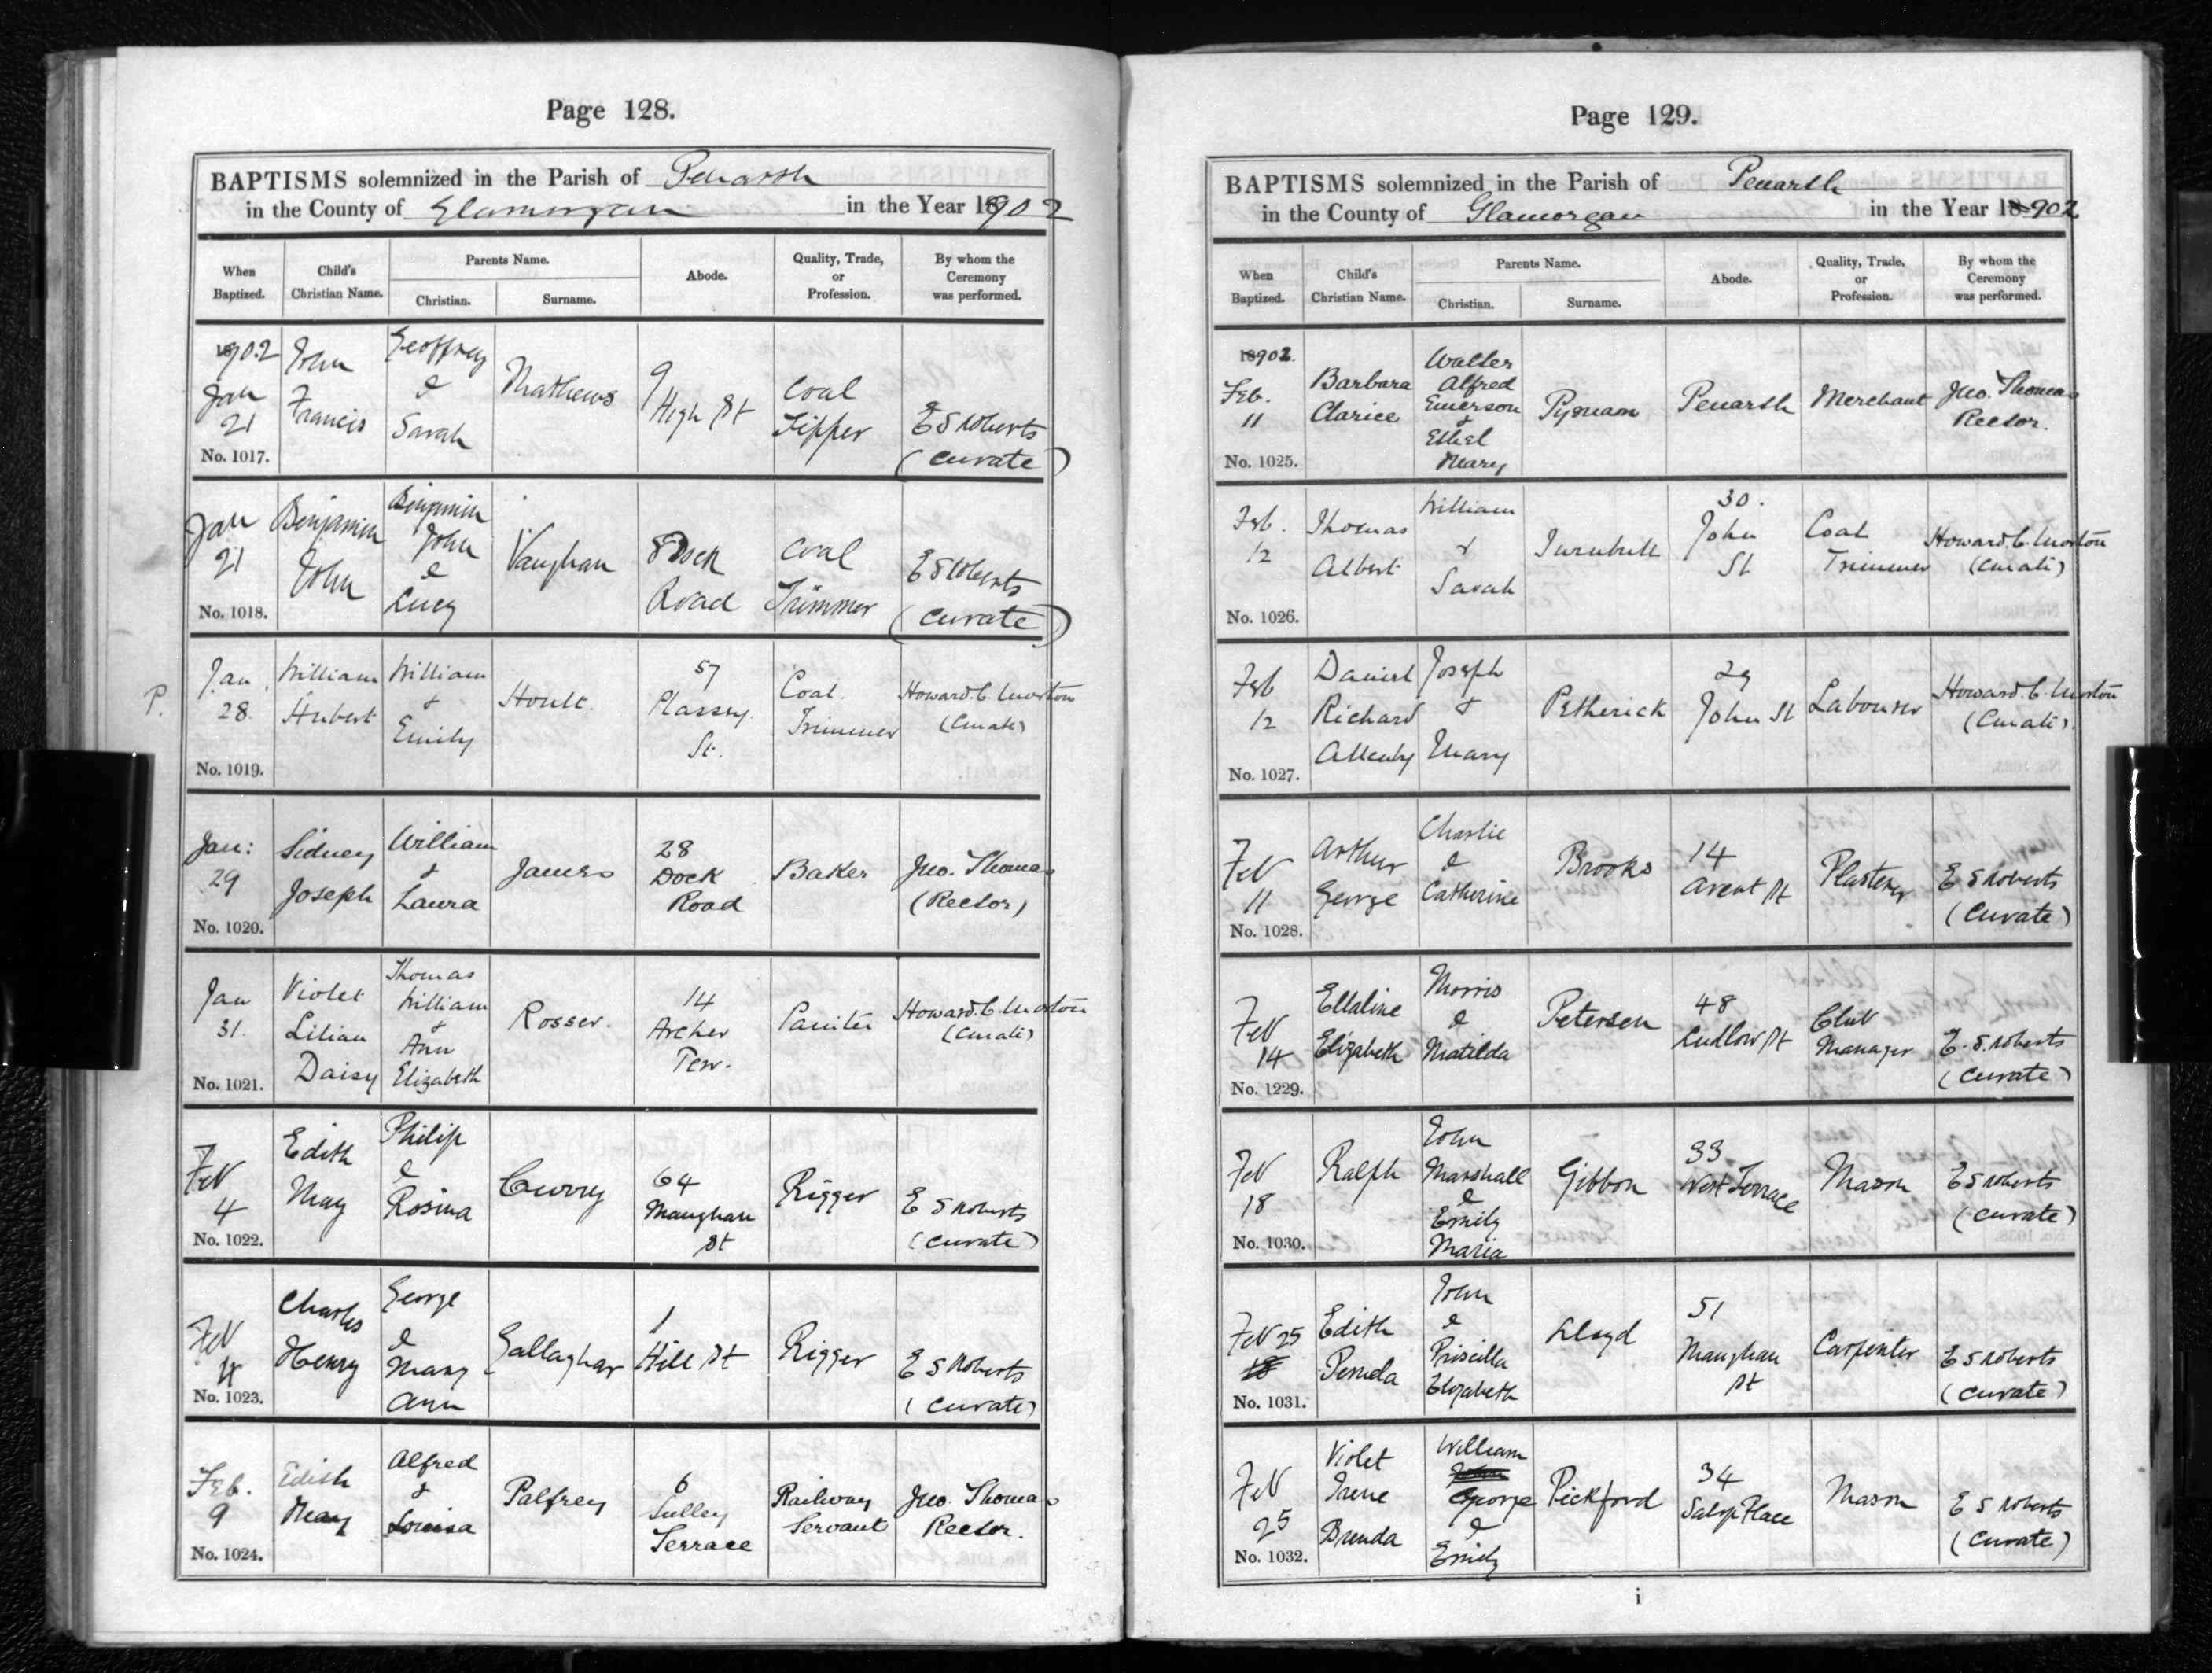 Page 128.
BAPTISMS solemnized in the Parish of Penarth
in the County of Glamorgan in the Year 18902
When Baptized.
Child's Christian Name.
Parents Name.
Christian.
Surname.
Abode.
Quality, Trade, or Profession.
By whom the Ceremony was performed.
18902 Jan 21
No. 1017.
John Francis
Geoffrey & Sarah
Mathews
9 High St
Coal Tipper
E S Roberts (Curate)
Jan 21
No. 1018.
Benjamin John
Benjamin John & Lucy
Vaughan
8 Dock Road
Coal Trimmer
E S Roberts (Curate)
P.
Jan 28.
No. 1019.
William Hubert
William & Emily
Hoult.
57 Plassey St.
Coal Trimmer
Howard. C. Morton (Curate)
Jan: 29
No. 1020.
Sidney Joseph
William & Laura
James
28 Dock Road
Baker
Jno. Thomas (Rector)
Jan 31.
No. 1021.
Violet Lilian Daisy
Thomas William & Ann Elizabeth
Rosser.
14 Archer Terr.
Painter
Howard. C. Morton (Curate)
Feb 4
No. 1022.
Edith May
Philip & Rosina
64 Maughan St
Rigger
E S Roberts (Curate)
Feb
No. 1023.
Charles Henry
George & Mary Ann
Gallaghar
1 Hill St
Rigger
E S Roberts (Curate)
Feb. 9
No. 1024.
Edith May
Alfred & Louisa
Palfrey
6 Sulley Terrace
Railway Servant
Jno. Thomas Rector.
Page 129.
BAPTISMS solemnized in the Parish of Penarth
in the County of Glamorgan in the Year 18902
When Baptized.
Child's Christian Name.
Parents Name.
Christian.
Surname.
Abode.
Quality, Trade, or Profession.
By whom the Ceremony was performed.
18902. Feb. 11
No. 1025.
Barbara Clarice
Walter Alfred Emerson & Ethel Mary
Penarth
Merchant
Jno. Thomas Rector.
Feb. 12
No. 1026.
Thomas Albert
William & Sarah
Turnbull
30. John St
Coal Trimmer
Howard. C. Morton (Curate)
Feb 12
No. 1027.
Daniel Richard Allenby
Joseph & Mary
Petherick
29 John St
Labourer
Howard. C. Morton (Curate).
Feb 11
No. 1028.
Arthur George
Charlie & Catherine
Brooks
14 Arcot St
Plasterer
E S Roberts (Curate)
Feb 14
No. 1229.
Ellaline Elizabeth
Morris & Matilda
Petersen
48 Ludlow St
Club Manager
E. S. Roberts (Curate)
Feb 18
No. 1030.
Ralph
John Marshall & Emily Maria
Gibbon
33 West Terrace
Mason
E S Roberts (Curate)
Feb 25
No. 1031.
Edith
John & Priscilla Elizabeth
Lloyd
51 Maughan St
Carpenter
E S Roberts (Curate)
Feb 25
No. 1032.
Violet Irene Brenda
William George & Emily
Pickford
34 Salop Place
Mason
E S Roberts (Curate)
i